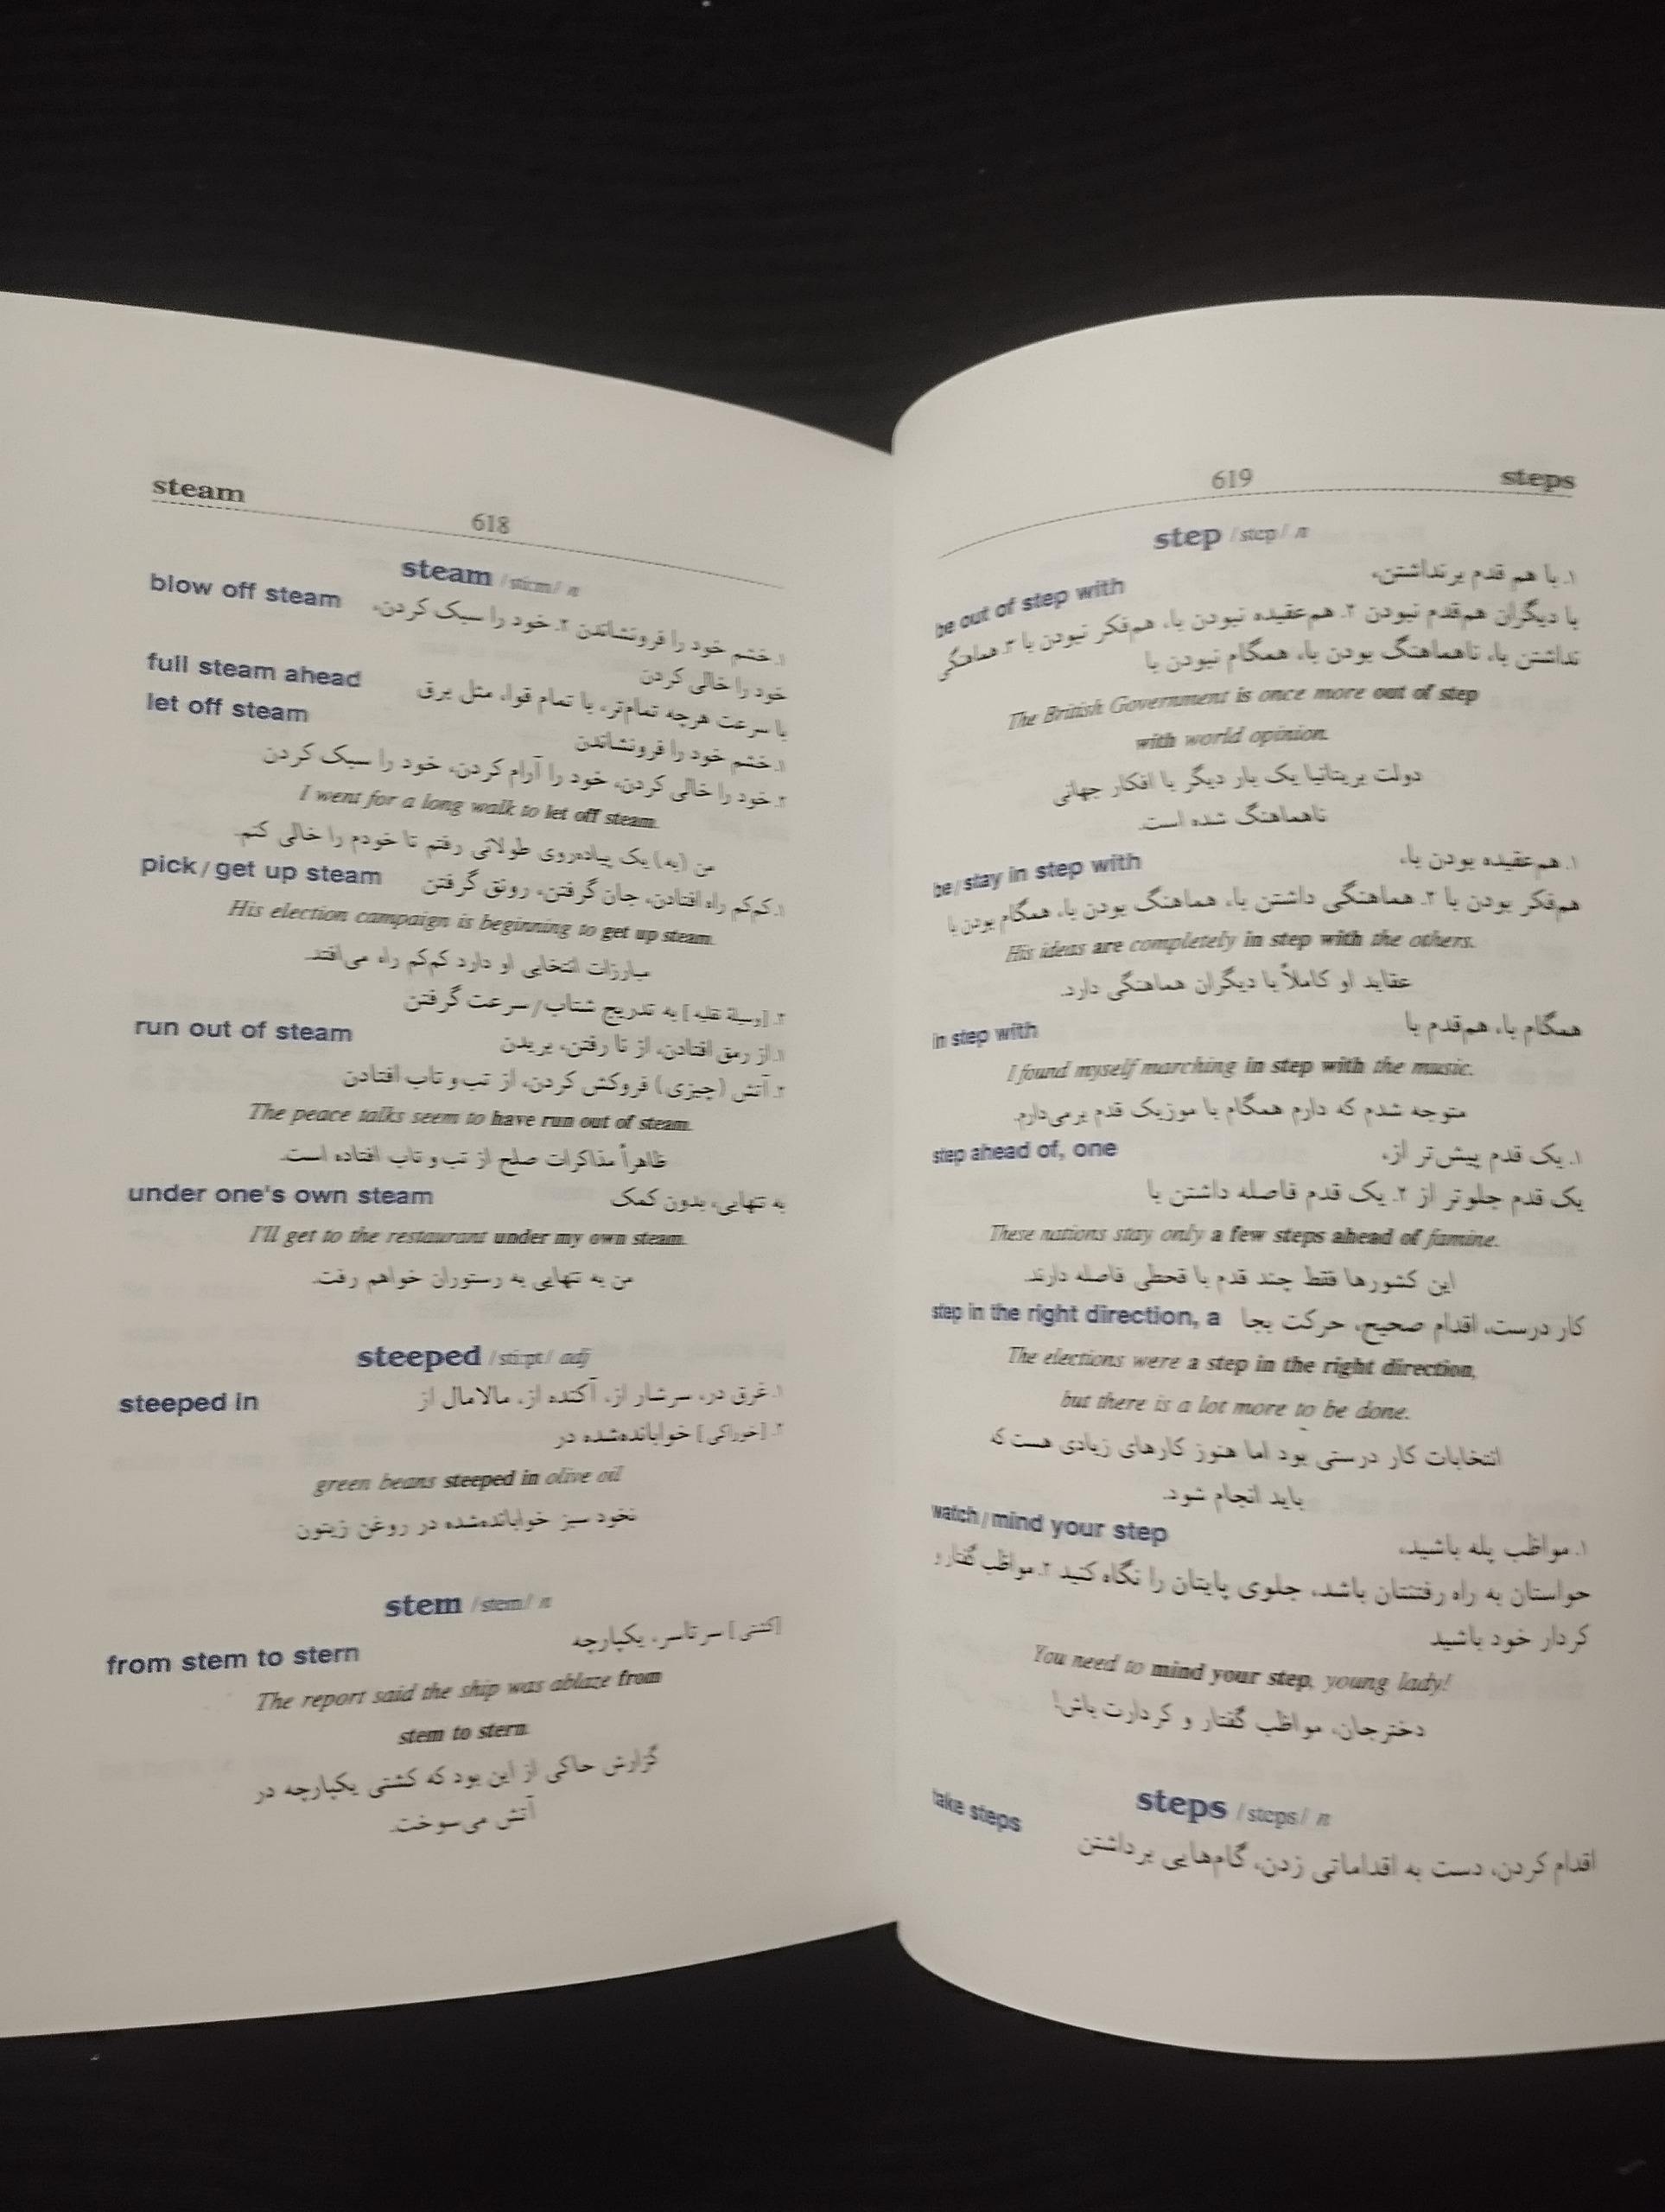 steam
618
steam /sti:m/ n
blow off steam ۱. خشم خود را فرونشاندن ۲. خود را سبک کردن،
خود را خالی کردن
full steam ahead با سرعت هرچه تمام‌تر، با تمام قوا، مثل برق
let off steam ۱. خشم خود را فرونشاندن
۲. خود را خالی کردن، خود را آرام کردن، خود را سبک کردن
I went for a long walk to let off steam.
من (یه) یک پیاده‌روی طولانی رفتم تا خودم را خالی کنم.
pick/get up steam ۱. کم‌کم راه افتادن، جان گرفتن، رونق گرفتن
His election campaign is beginning to get up steam.
مبارزات انتخابی او دارد کم‌کم راه می‌افتد.
۲. [وسیلهٔ نقلیه] به تدریج شتاب/سرعت گرفتن
run out of steam ۱. از رمق افتادن، از نا رفتن، بریدن
۲. آتش (چیزی) فروکش کردن، از تب و تاب افتادن
The peace talks seem to have run out of steam.
ظاهراً مذاکرات صلح از تب و تاب افتاده است.
under one's own steam به تنهایی، بدون کمک
I'll get to the restaurant under my own steam.
من به تنهایی به رستوران خواهم رفت.
steeped /sti:pt/ adj
steeped in ۱. غرق در، سرشار از، آکنده از، مالامال از
۲. [خوراکی] خوابانده‌شده در
green beans steeped in olive oil
نخود سبز خوابانده‌شده در روغن زیتون
stem /stem/ n
from stem to stern [کشتی] سرتاسر، یکپارچه
The report said the ship was ablaze from
stem to stern.
گزارش حاکی از این بود که کشتی یکپارچه در
آتش می‌سوخت.
619
steps
step /step/ n
be out of step with ۱. با هم قدم برنداشتن،
با دیگران هم‌قدم نبودن ۲. هم‌عقیده نبودن با، هم‌فکر نبودن با ۳. هماهنگی
نداشتن با، ناهماهنگ بودن با، همگام نبودن با
The British Government is once more out of step
with world opinion.
دولت بریتانیا یک بار دیگر با افکار جهانی
ناهماهنگ شده است.
be/stay in step with ۱. هم‌عقیده بودن با،
هم‌فکر بودن با ۲. هماهنگی داشتن با، هماهنگ بودن با، همگام بودن با
His ideas are completely in step with the others.
عقاید او کاملاً با دیگران هماهنگی دارد.
in step with همگام با، هم‌قدم با
I found myself marching in step with the music.
متوجه شدم که دارم همگام با موزیک قدم برمی‌دارم.
step ahead of, one ۱. یک قدم پیش‌تر از،
یک قدم جلوتر از ۲. یک قدم فاصله داشتن با
These nations stay only a few steps ahead of famine.
این کشورها فقط چند قدم با قحطی فاصله دارند.
step in the right direction, a کار درست، اقدام صحیح، حرکت بجا
The elections were a step in the right direction,
but there is a lot more to be done.
انتخابات کار درستی بود اما هنوز کارهای زیادی هست که
باید انجام شود.
watch/mind your step ۱. مواظب پله باشید،
حواستان به راه رفتنتان باشد، جلوی پایتان را نگاه کنید ۲. مواظب گفتار و
کردار خود باشید
You need to mind your step, young lady!
دخترجان، مواظب گفتار و کردارت باش!
steps /steps/ n
take steps
اقدام کردن، دست به اقداماتی زدن، گام‌هایی برداشتن